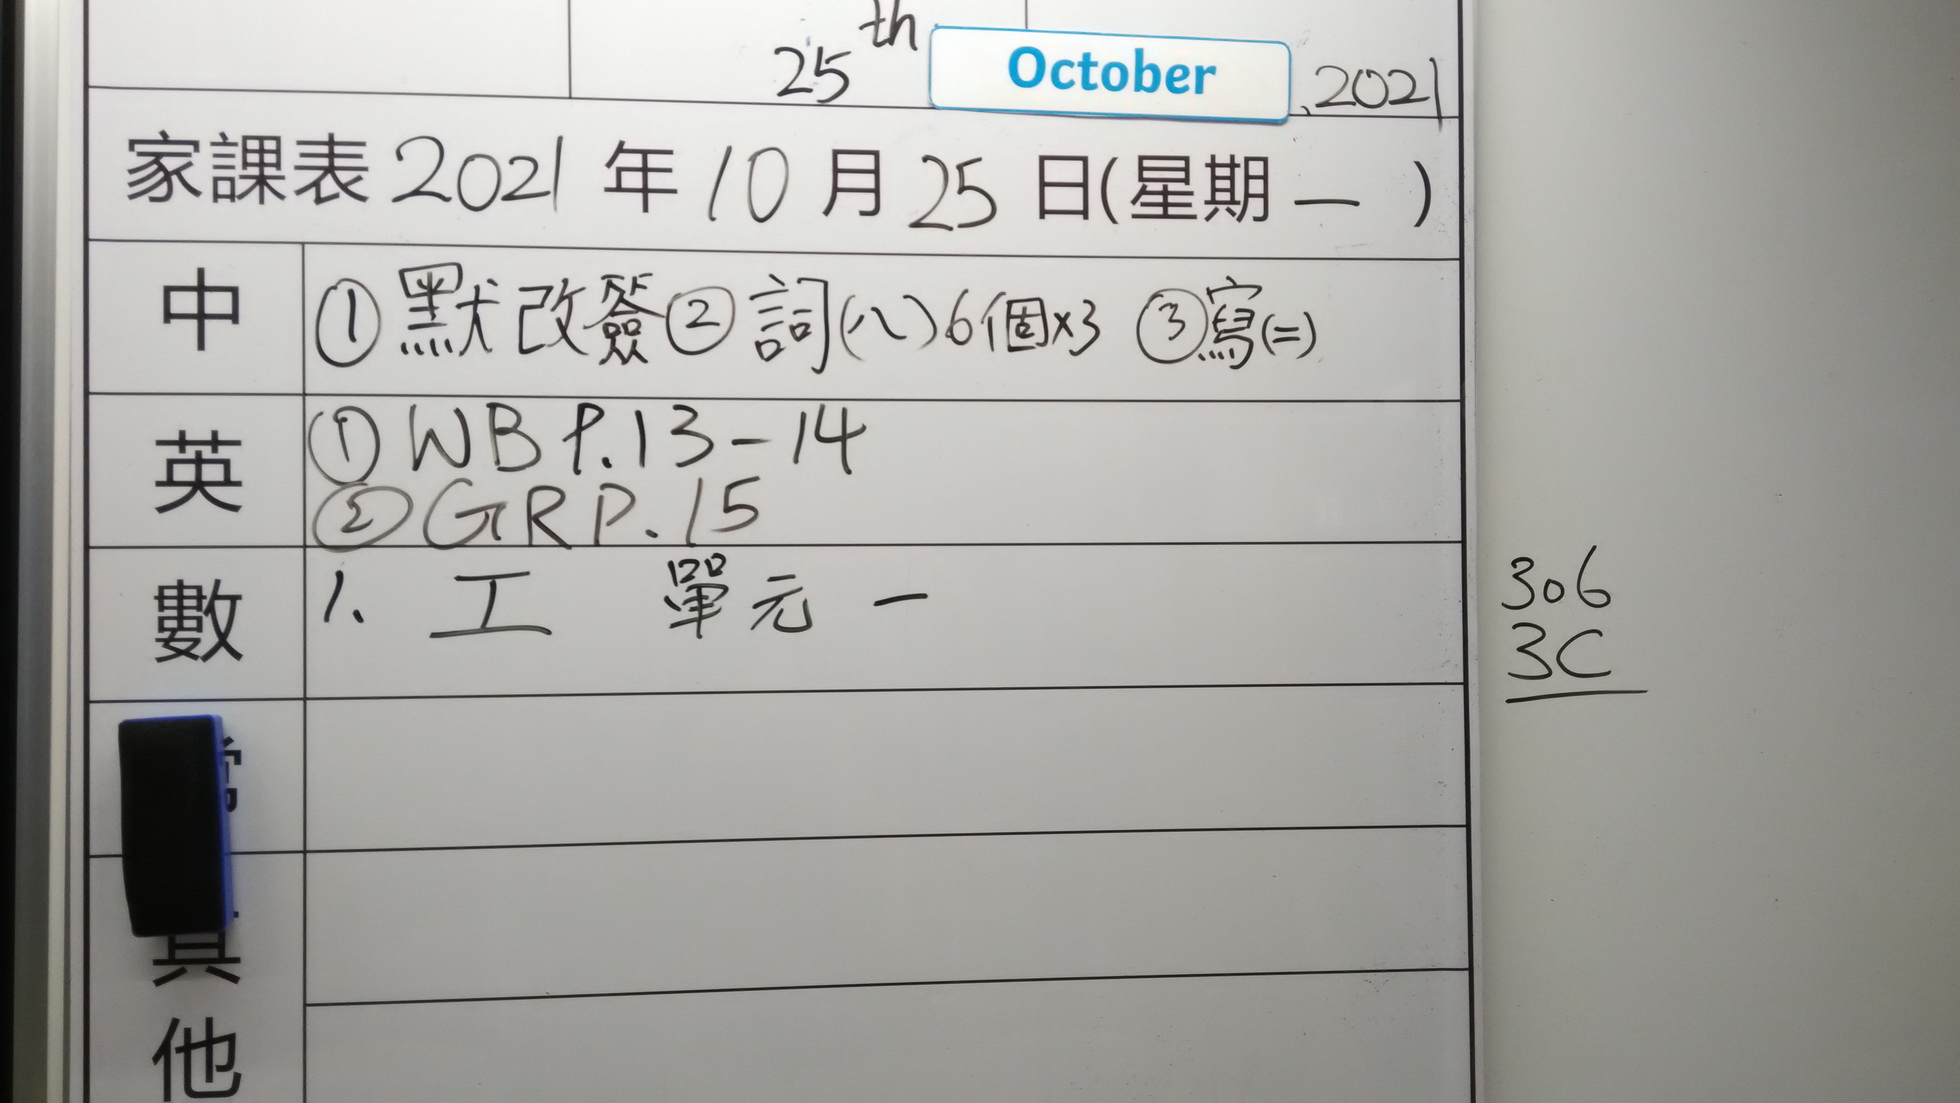 25th October, 2021
家課表 2021 年 10 月 25 日(星期 一 )
中 ①默改簽②詞(八)6個x3 ③寫(二)
英 ①WB P.13-14
②GR P.15
數 1. 工 單元一
常
其
他
306
3C